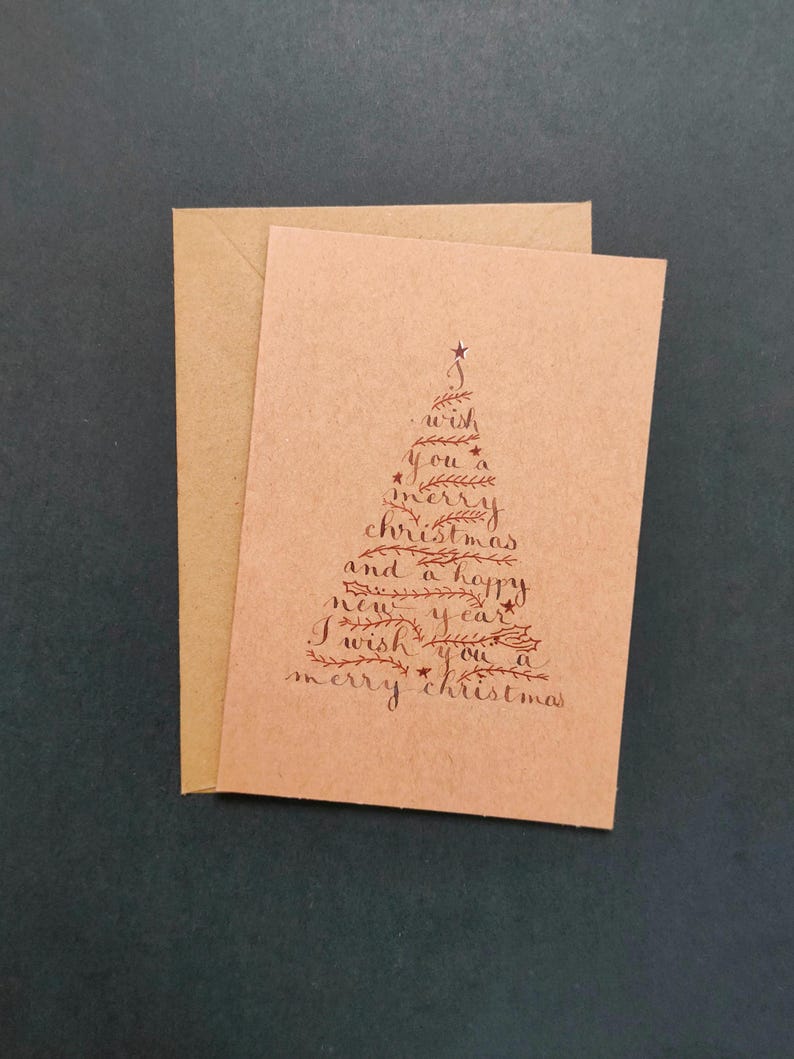 I
wish
you a
merry
christmas
and a happy
new year
I wish you a
merry christmas